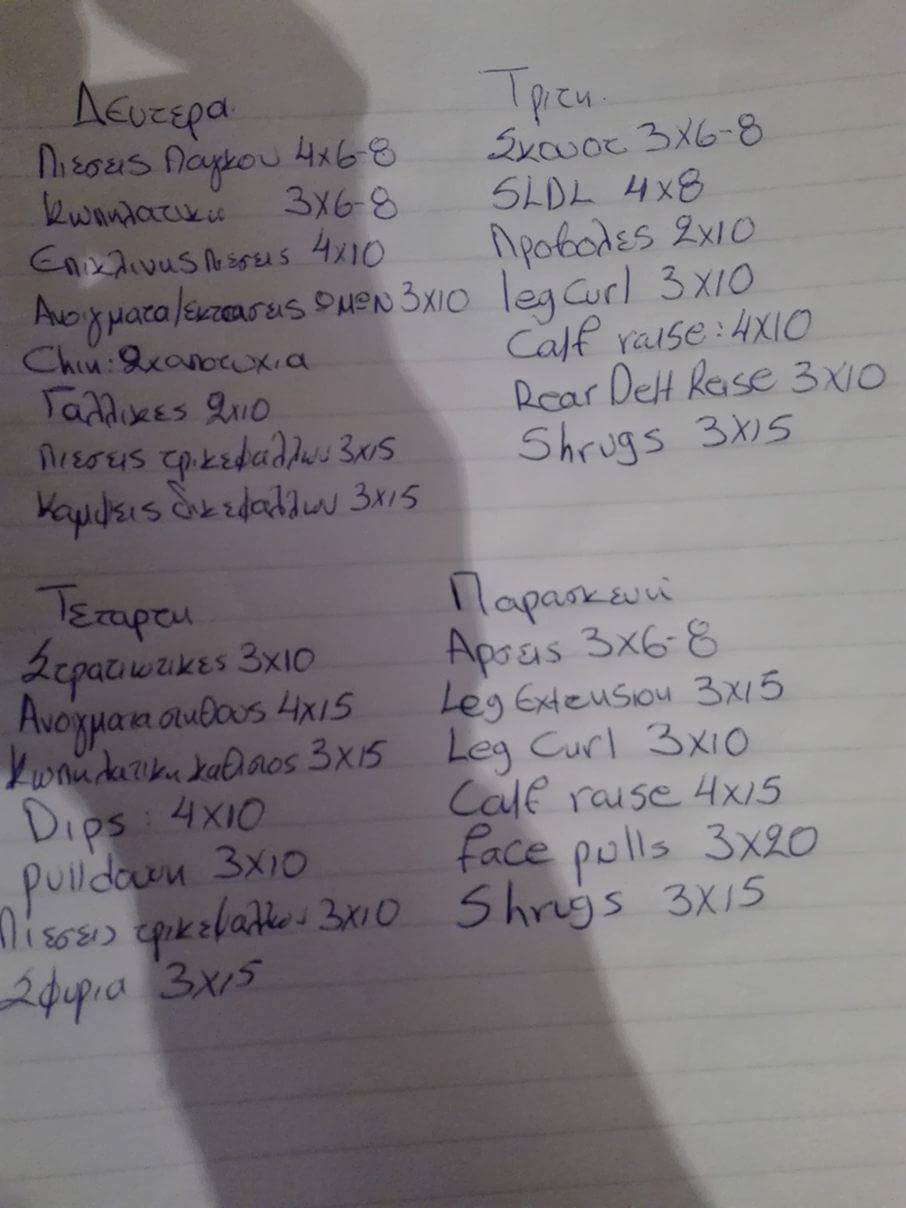 Δευτερα
Πιεσεις Παγκου 4x6-8
Κωπηλατικη 3x6-8
Επικλινης πιεσεις 4x10
Ανοιγματα/εκτασεις ωμων 3x10
Chin: 2
Γαλλικες 2x10
Πιεσεις τρικεφαλλων 3x15
Καμψεις δικεφαλλων 3x15
Τριτη
Σκουοτ 3x6-8
SLDL 4x8
Προβολες 2x10
leg Curl 3x10
Calf raise: 4x10
Rear Delt Reise 3x10
Shrugs 3x15
Τεταρτη
Στρατιωτικες 3x10
Ανοιγματα στηθους 4x15
Κωπηλατικη καθιστος 3x15
Dips: 4x10
pulldown 3x10
Πιεσεις τρικεφαλλων 3x10
Σφυρια 3x15
Παρασκευή
Αρσεις 3x6-8
Leg Extension 3x15
Leg Curl 3x10
Calf raise 4x15
face pulls 3x20
Shrugs 3x15